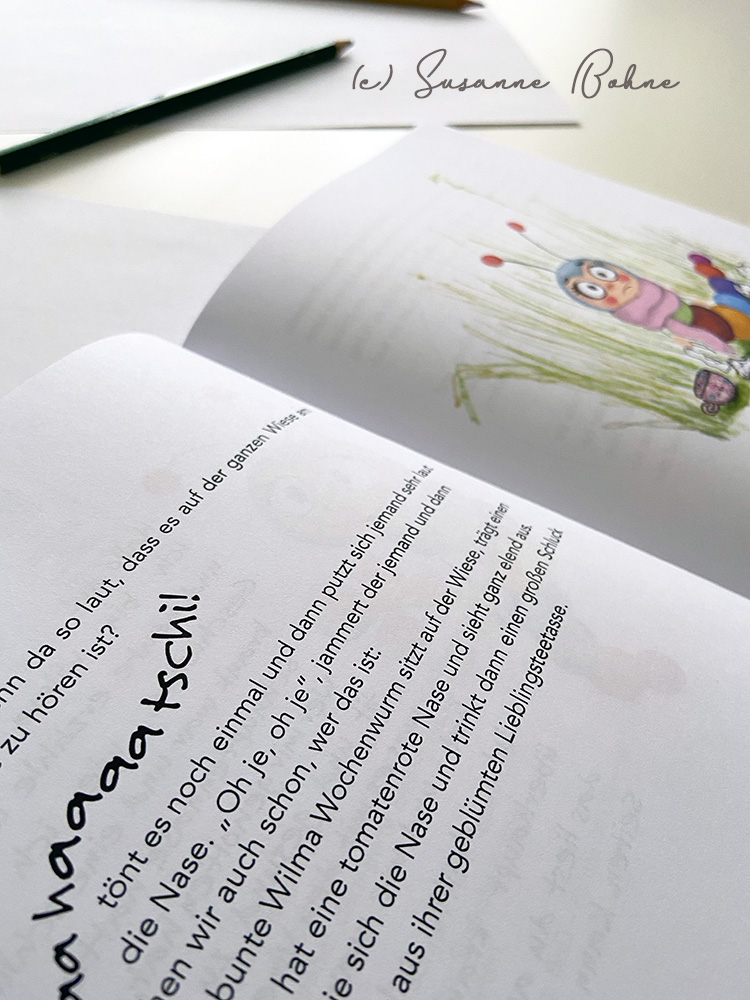 (c) Susanne Bohne
nn da so laut, dass es auf der ganzen Wiese am
zu hören ist?
haaaatschi!
tönt es noch einmal und dann putzt sich jemand sehr laut
die Nase. „Oh je, oh je“, jammert der jemand und dann
en wir auch schon, wer das ist:
bunte Wilma Wochenwurm sitzt auf der Wiese, trägt einen
hat eine tomatenrote Nase und sieht ganz elend aus.
ie sich die Nase und trinkt dann einen großen Schluck
aus ihrer geblümten Lieblingsteetasse.